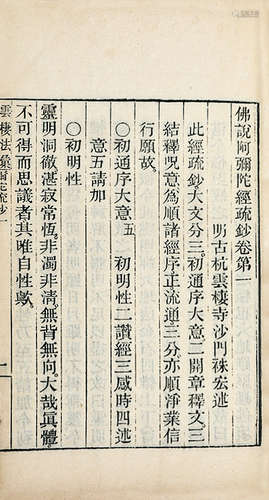 佛說阿彌陀經疏鈔卷第一
明古杭雲棲寺沙門袾宏述
此經疏鈔大文分三。初通序大意二開章釋文三
結釋呪意爲順諸經序正流通三分亦順淨業信
行願故。
○初通序大意五　初明性二讚經三感時四述
意五請加
○初明性
靈明洞徹湛寂常恆。非濁非淸。無背無向。大哉眞體。
不可得而思議者其唯自性歟。
雲棲法彙